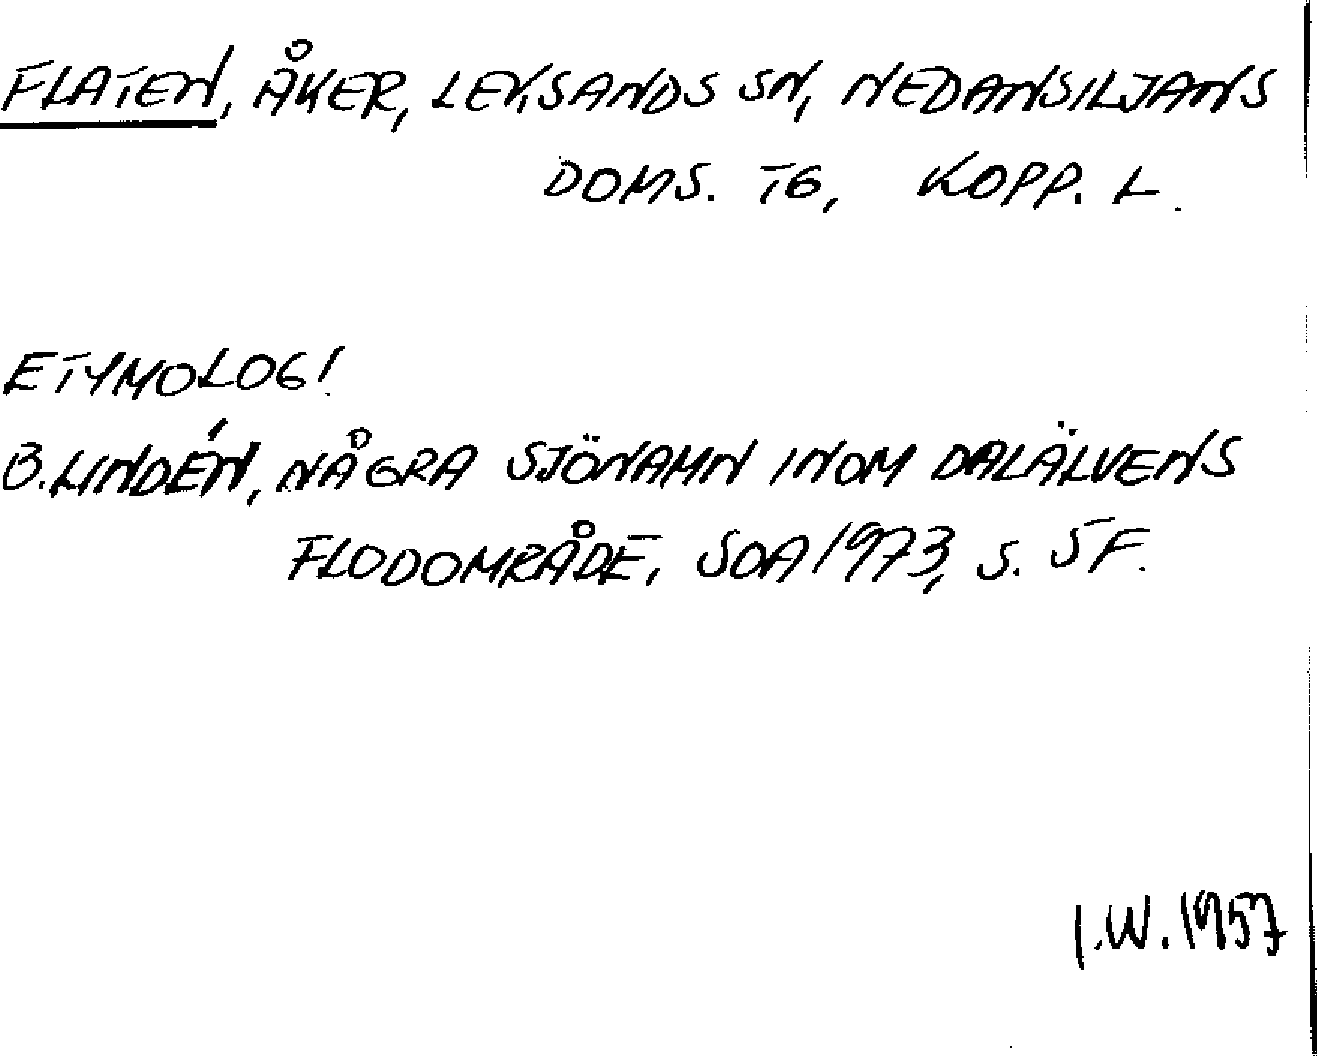 FLATEN, ÅKER, LEKSANDS SN, NEDANSILJANS
DOMS. TG, KOPP. L.
ETYMOLOG!
B. LINDÉN, NÅGRA SJÖNAMN INOM DALÄLVENS
FLODOMRÅDE, SOA 1973, S. 5 F.
I.W. 1957